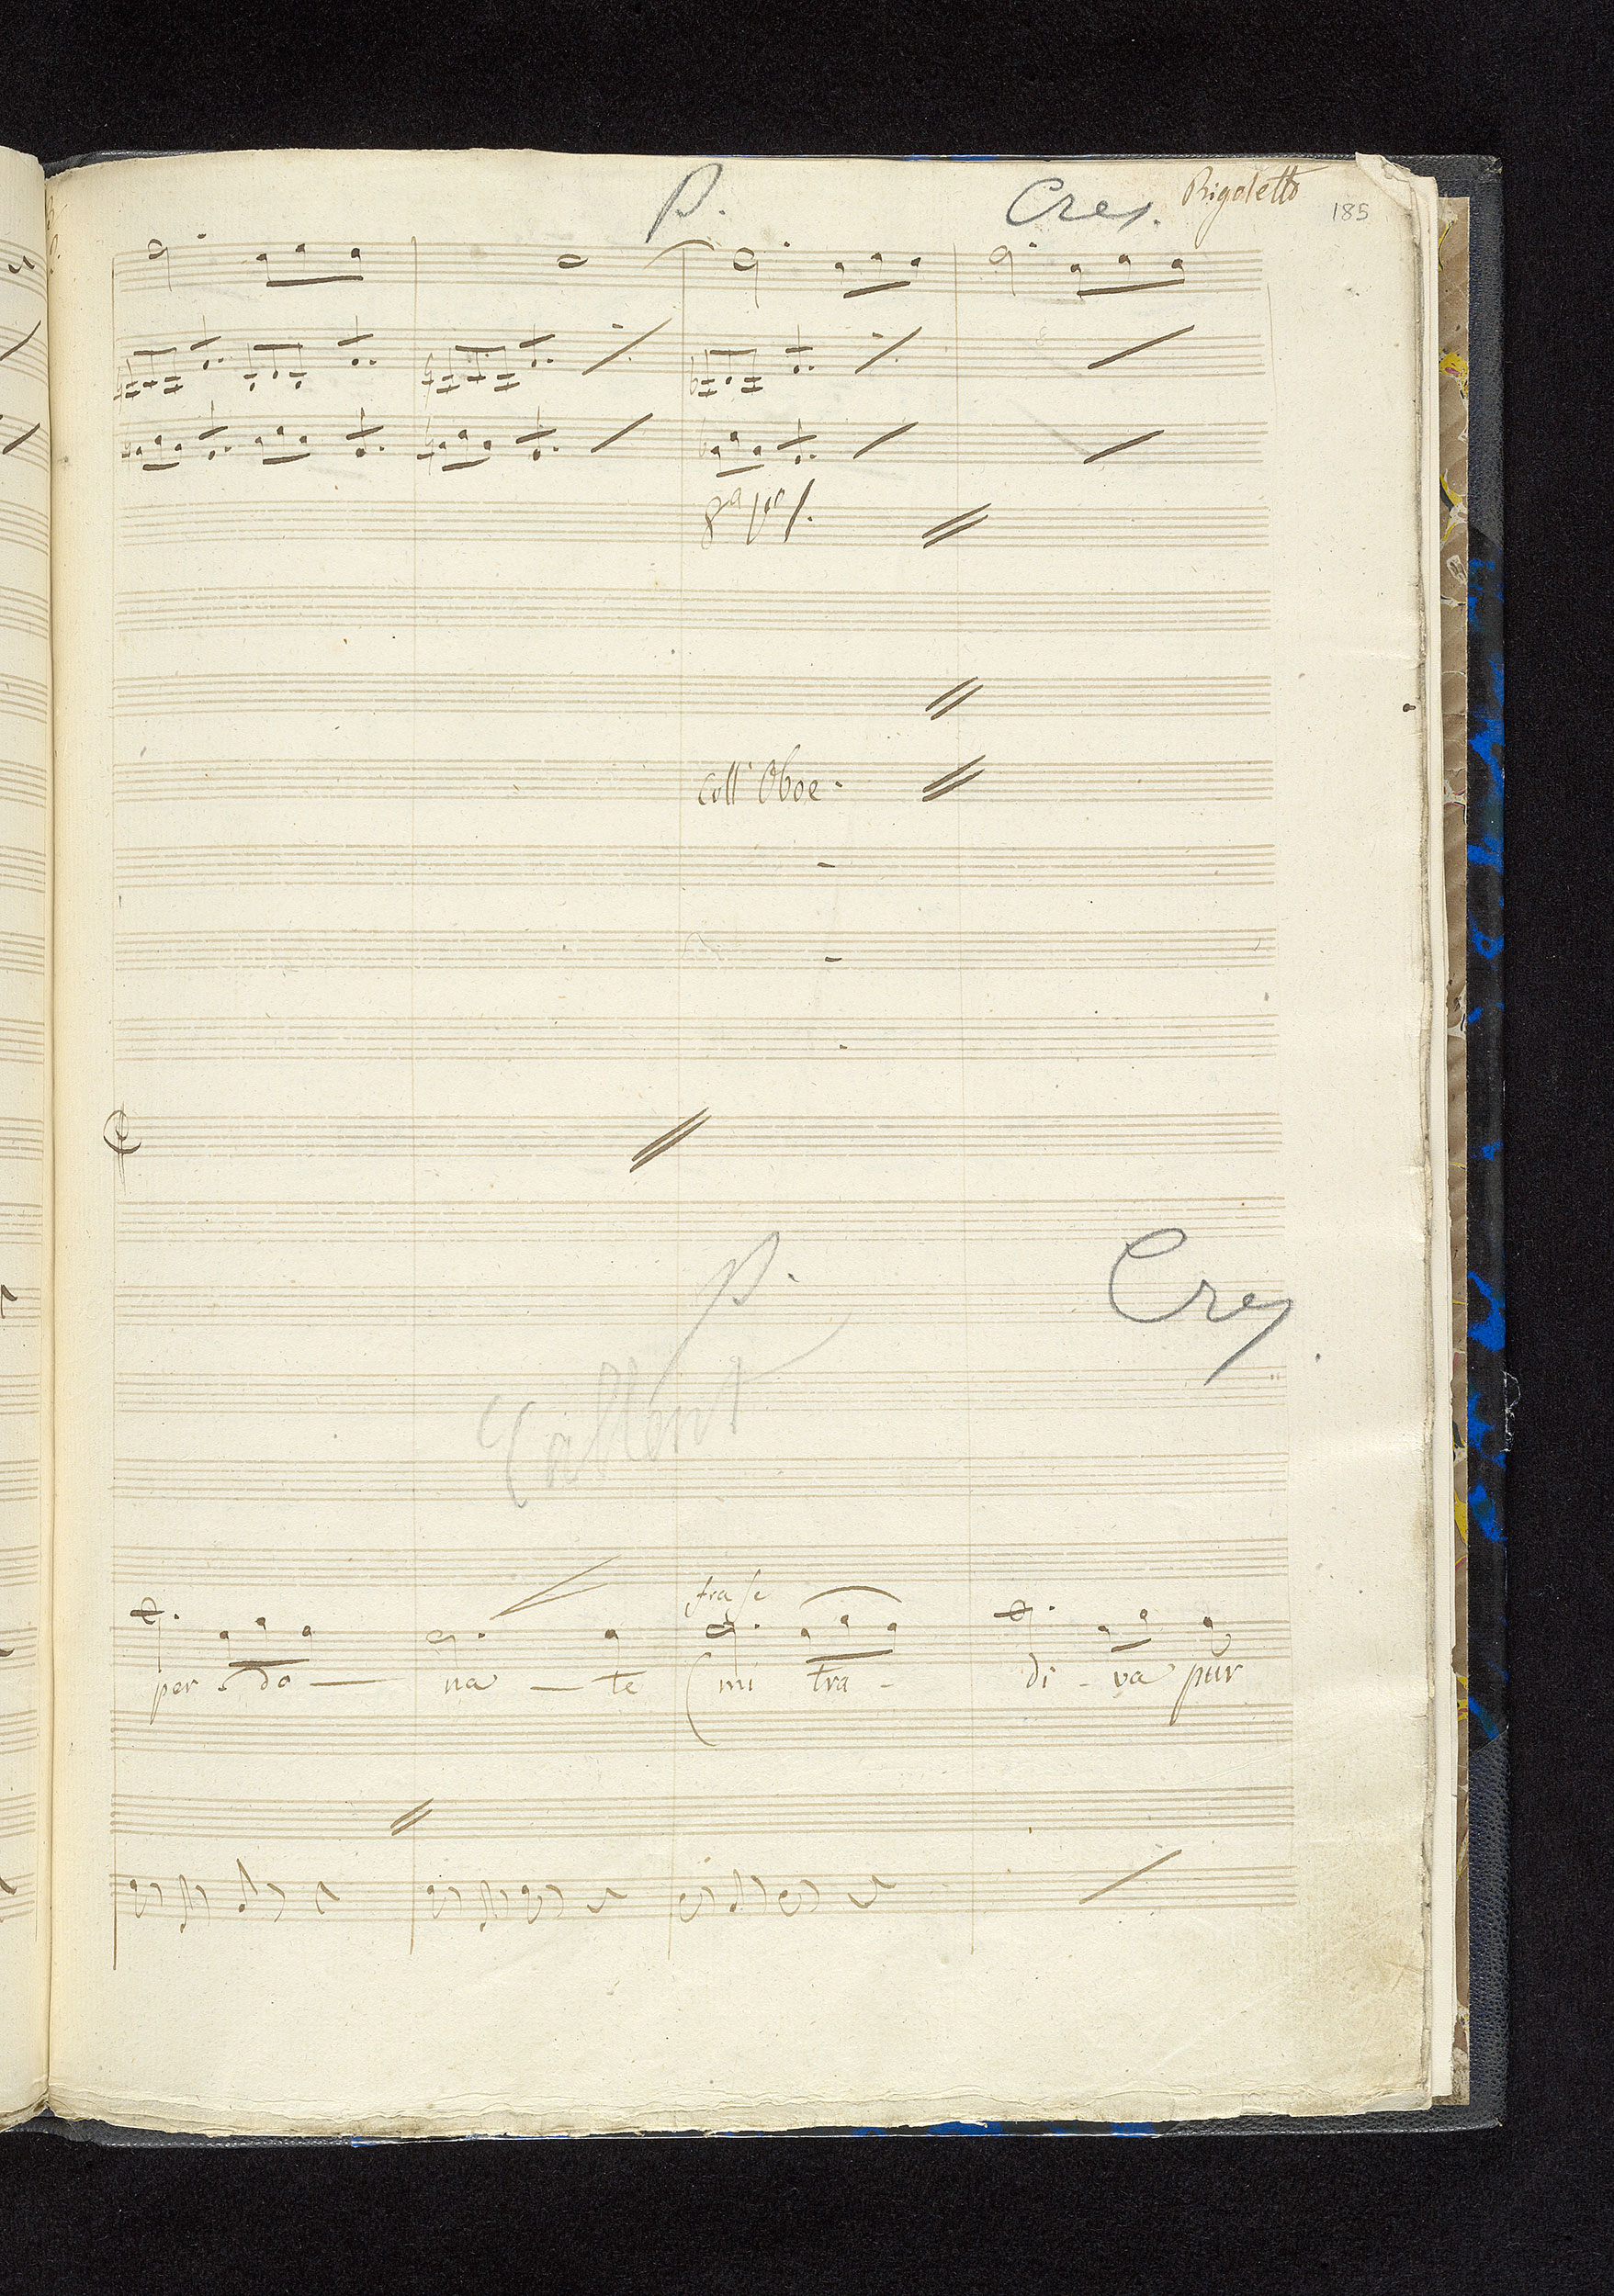 P. Cres. Rigoletto 185
coll' Oboe.
P.
Cres
Rallent
fra se
per - do - na - te (mi tra - di - va pur